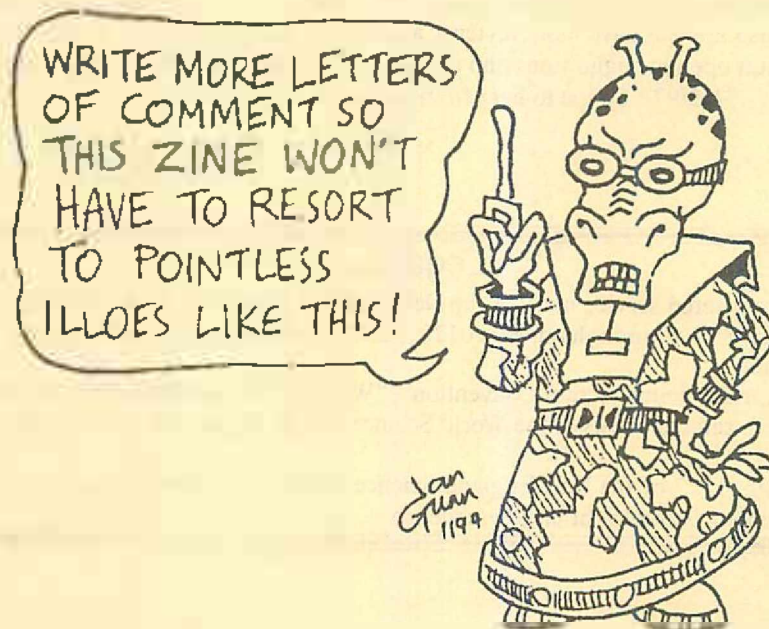 WRITE MORE LETTERS
OF COMMENT SO
THIS ZINE WON'T
HAVE TO RESORT
TO POINTLESS
ILLOES LIKE THIS!
Ian
Gunn
1194